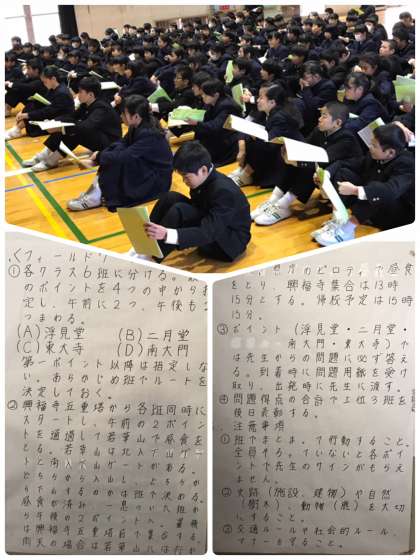 くフィールドワ
①各クラス6班に分ける。
のポイントを4つの中から
定し、午前に2つ、午後も
つまわる。
(A)浮見堂 (B)二月堂
(C)東大寺 (D)南大門
第一ポイント以降は指定しな
い。あらかじめ班でルートを
決定しておく。
②興福寺五重塔から各班同時に
スタートし、午前の2ポイン
トを通過して若草山で昼食を
とる。若草山は北入山ゲー
トと南入山ゲートがある。
どちらから入山しどちらか
昼食が済み
ら午後の2ポイント
は興福寺五重塔
雨天の場合は若草山には行か
昼食
をとり、興福寺集合は13時
15分とする。帰校予定は15時
15分。
③ポイント(浮見堂・二月堂・
南大門・東大寺)で
は先生からの問題に必ず答え
る。到着時に問題用紙を受け
取り、出発時に先生に渡す。
④問題得点の合計で上位3班を
後日表彰する。
注意事項
①班でまとまって行動すること。
全員そろっていないと各ポイ
ントで先生のサインがもらえ
ません。
②史跡(施設、建物)や自然
(樹木)、動物(鹿)を大切
にすること。
③交通ルールや社会的ルール、
マナーを守ること。